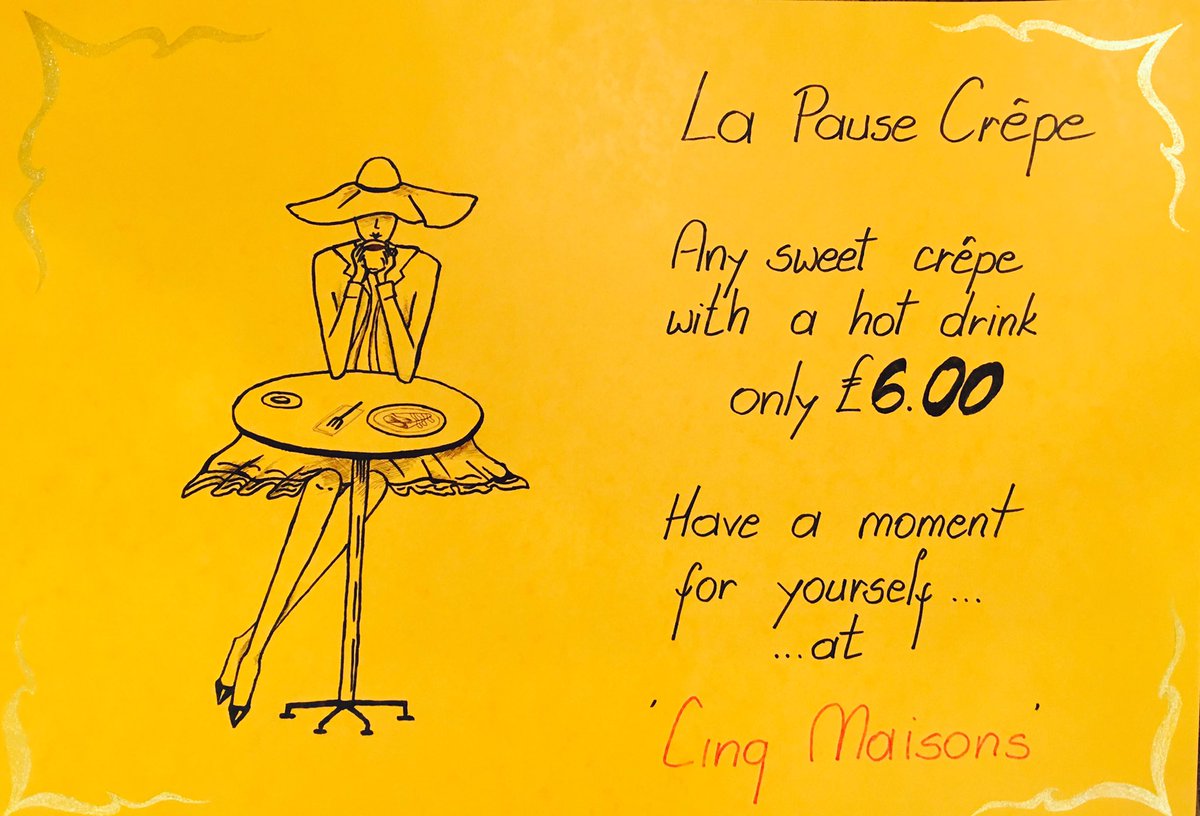 La Pause Crêpe
Any sweet crêpe
with a hot drink
only £6.00
Have a moment
for yourself...
...at
'Cinq Maisons'